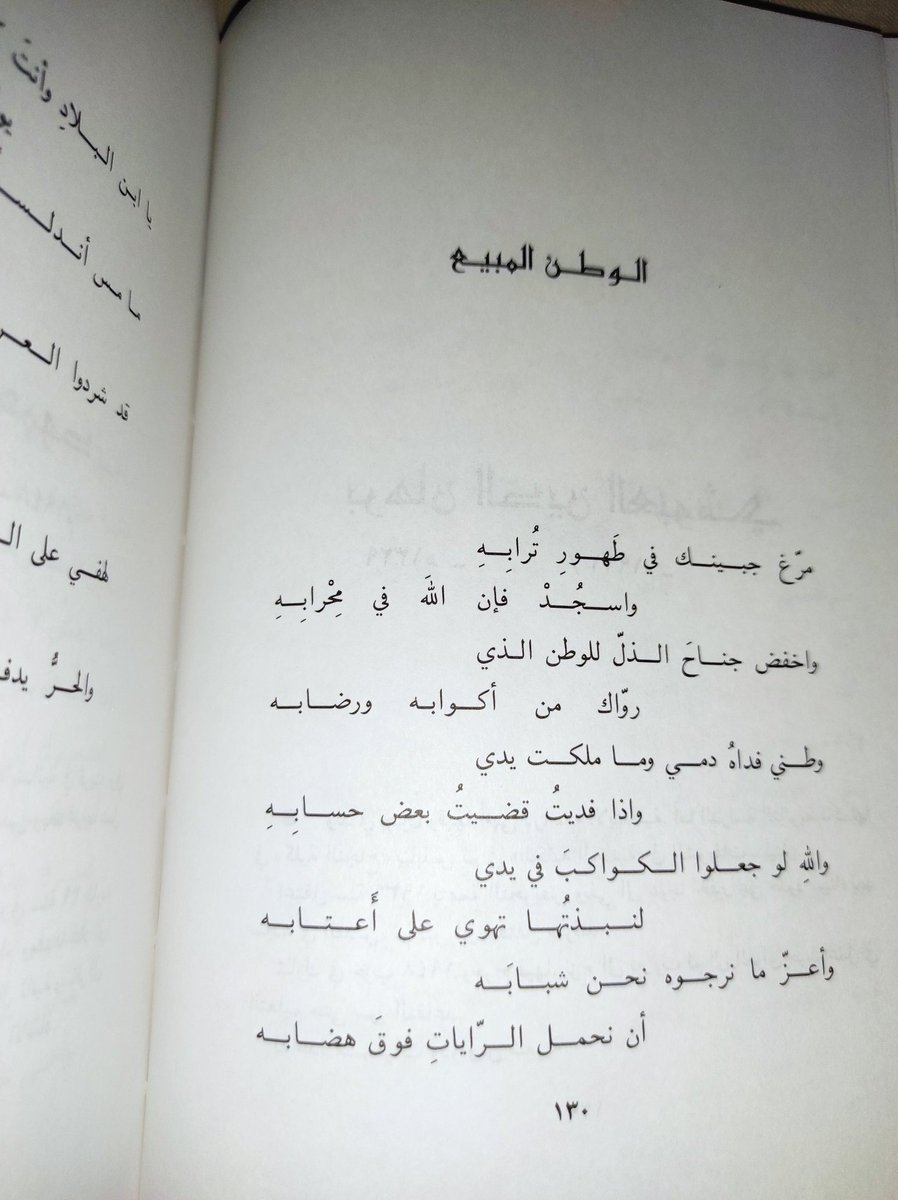 الوطن المبيع
مرّغ جبينك في طَهورِ تُرابِهِ
واسجُدْ فإن اللهَ في مِحْرابِهِ
واخفض جناحَ الذلّ للوطن الذي
روّاك من أكوابه ورضابه
وطني فداهُ دمي وما ملكت يدي
واذا فديتُ قضيتُ بعض حسابِهِ
واللهِ لو جعلوا الكواكبَ في يدي
لنبذتُها تهوي على أَعتابه
وأعزّ ما نرجوه نحن شبابَه
أن نحمل الرّاياتِ فوقَ هضابه
١٣٠
يا ابن البلادِ وأنتَ
ما مس أندلس
قد شردوا العر
لهفي على ال
والحرُّ يدف